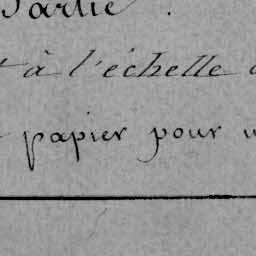 Partie .
à l'échelle
papier pour